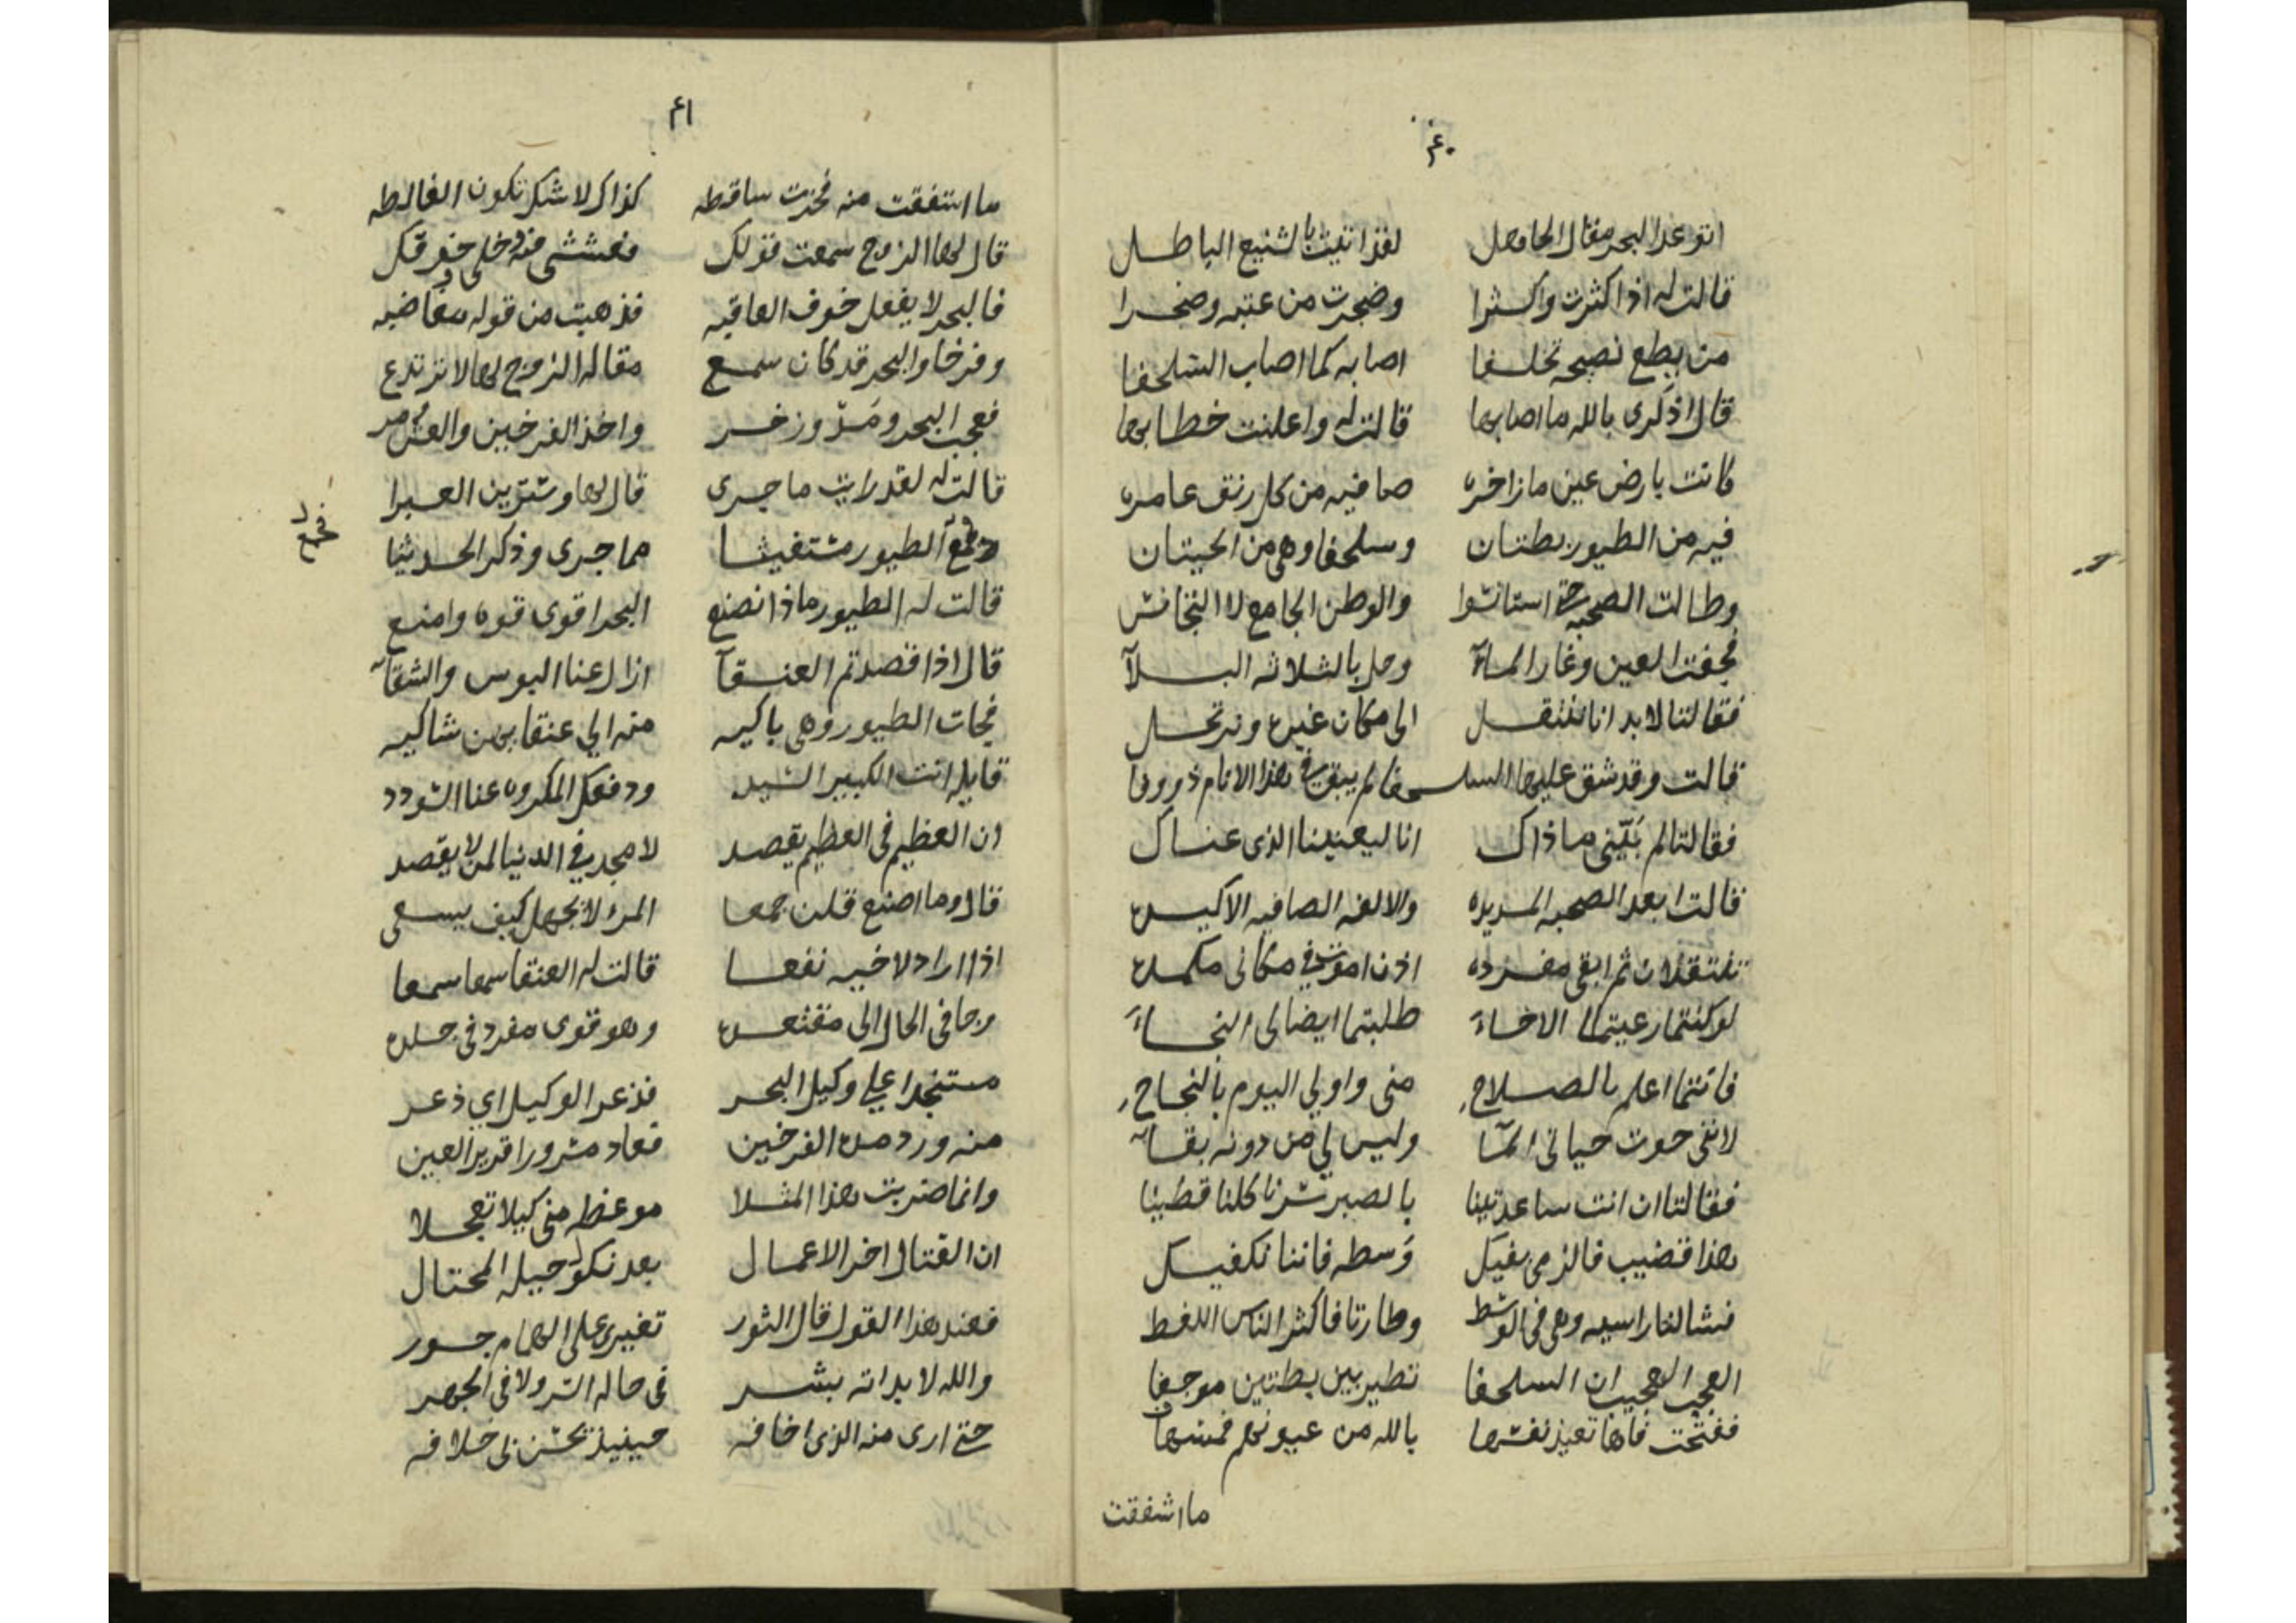 ٤٠
اتوعد البحر مقال الجاهل لقد اتيت بالشنيع الباطل
قالت له اذا كثرت واكثرا وضجرت من عتبه وضجرا
من يطع نصيحه تخلفا اصابه كما اصاب السلحفا
قال اذكري بالله ما اصابها قالت له واعلنت خطابها
كانت بارض عين ما زاخره صافيه من كل رنق عامره
فيه من الطيور بطتان وسلحفا وهي من الحيتان
وطالت الصحبه حتى استانسوا والوطن الجامع لا التجانس
فجفت العين وغار المآء وحل بالثلاثه البلآ
فقالتا لا بد انا ننتقل الى مكان غيره ونرتحل
قالت وقد شق عليها السلحفا لم يبق في هذا الانام ذو وفا
فقالتا لم بيني ما ذاك انا ليعنينا الذى عناك
قالت ابعد الصحبه المديده والالفه الصافيه الاكيده
تنتقلان ثم ابقى مفرده اذن اموت في مكانى مكمده
لو كنتما رعيتما الاخاء طلبتما ايضا لى النجاء
فانتما اعلم بالصلاح منى واولي اليوم بالنجاح
لاننى حوت حياتى المآ وليس لي من دونه بقاء
فقالتا ان انت ساعدتينا بالصبر سرنا كلنا قطينا
هذا قضيب فالزمى بفيك وسطه فاننا نكفيك
فشالتا راسيه وهى فى الوسط وطارتا فاكثر الناس اللغط
العجب العجيب ان السلحفا تطير بين بطتين موجفا
ففتحت فاها تعيذ نفسها بالله من عيونهم فمسها
ما اشفقت
٤١
ما اشفقت منه فخرت ساقطه كذاك لا شك تكون الغالطه
قال لها الزوج سمعت قولك فعششى
فالبحر لا يفعل خوف العاقبه فذهبت من قوله مغاضبه
وفرخا والبحر قد كان سمع مقاله الزوج لها لا ترتدع
فعجب البحر ومدّ وزخر واخذ الفرخين والعش
قالت له لقد رايت ما جرى قال لها وسترين العبرا
الطيور مستغيثا مما جرى وذكر الحديثا
قالت له الطيور ماذا نصنع البحر اقوى قوه وامنع
قال اذا قصدتم العنقآ ازال عنا البوس والشقآء
فجات الطيور وهى باكيه منه الي عنقا بهن شاكيه
قايله انت الكبير السيد ودفعك المكروه عنا السودد
ان العظيم فى العظيم يقصد لا مجد في الدنيا لمن لا يقصد
قال وما اصنع قلن جمعا المرء لا يجهل كيف يسعى
اذا اراد لاخيه نفعا قالت له العنقا سمعا سمعا
وجا فى الحال الى وهو قوى مفرد فى جلده
مستنجدا علي وكيل البحر فذعر الوكيل اي ذعر
منه ورد الفرخين فعاد مسرورا قرير العين
وانما ضربت هذا المثلا موعظه منى كيلا تعجلا
ان القتال اخر الاعمال بعد نكول حيله المحتال
فعند هذا القول قال الثور تغيرى على الهمام جور
والله لا بداته بشر فى حاله السر ولا فى الجهر
حتى ارى منه الذى اخافه حينيذ تحسن لى خلافه